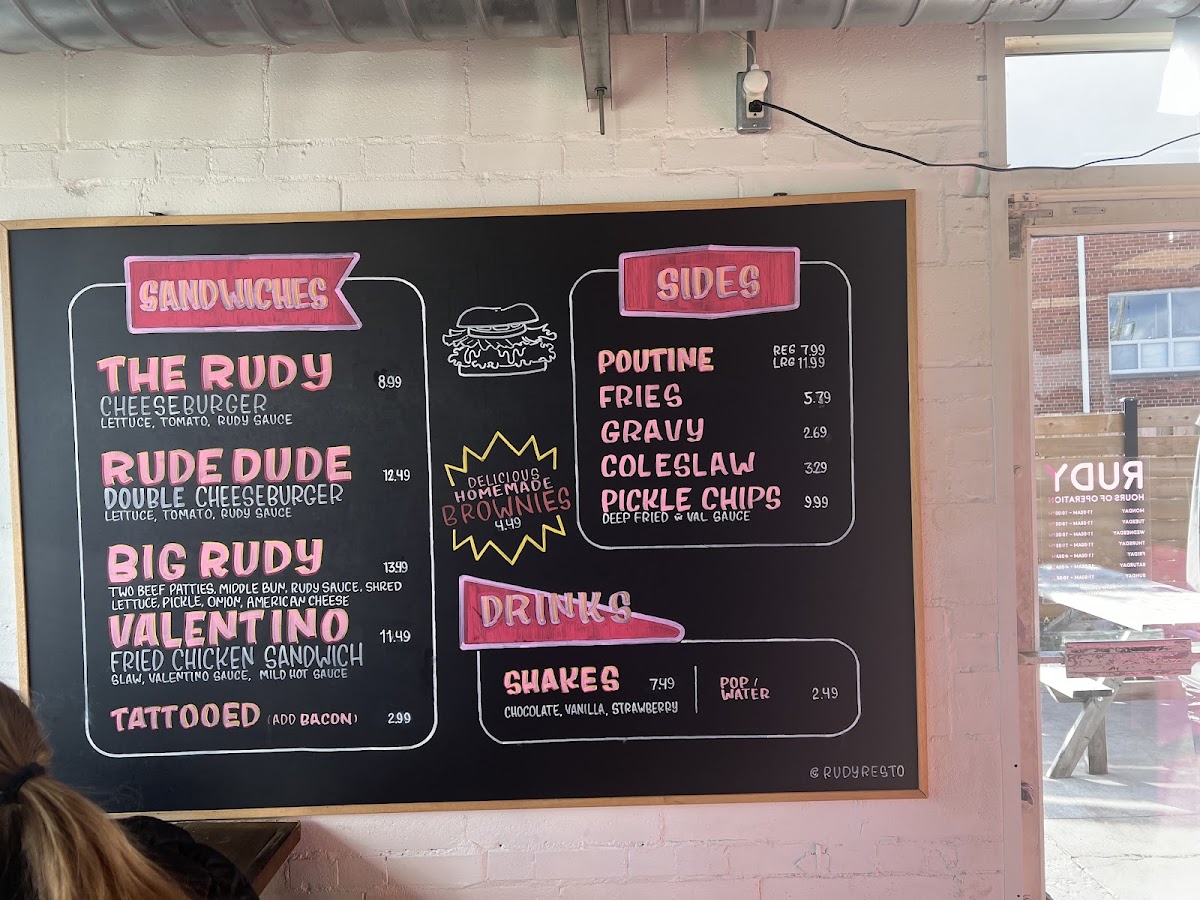 SANDWICHES
THE RUDY 8.99
CHEESEBURGER
LETTUCE, TOMATO, RUDY SAUCE
RUDE DUDE 12.49
DOUBLE CHEESEBURGER
LETTUCE, TOMATO, RUDY SAUCE
BIG RUDY 13.49
TWO BEEF PATTIES, MIDDLE BUN, RUDY SAUCE, SHRED
LETTUCE, PICKLE, ONION, AMERICAN CHEESE
VALENTINO 11.49
FRIED CHICKEN SANDWICH
SLAW, VALENTINO SAUCE, MILD HOT SAUCE
TATTOOED (ADD BACON) 2.99
DELICIOUS
HOMEMADE
BROWNIES
4.49
SIDES
POUTINE REG 7.99
LRG 11.99
FRIES 5.79
GRAVY 2.69
COLESLAW 3.29
PICKLE CHIPS 9.99
DEEP FRIED W VAL SAUCE
DRINKS
SHAKES 7.49
CHOCOLATE, VANILLA, STRAWBERRY
POP /
WATER 2.49
@RUDYRESTO
RUDY
HOURS OF OPERATION
MONDAY
TUESDAY
WEDNESDAY
THURSDAY
FRIDAY
SATURDAY
SUNDAY